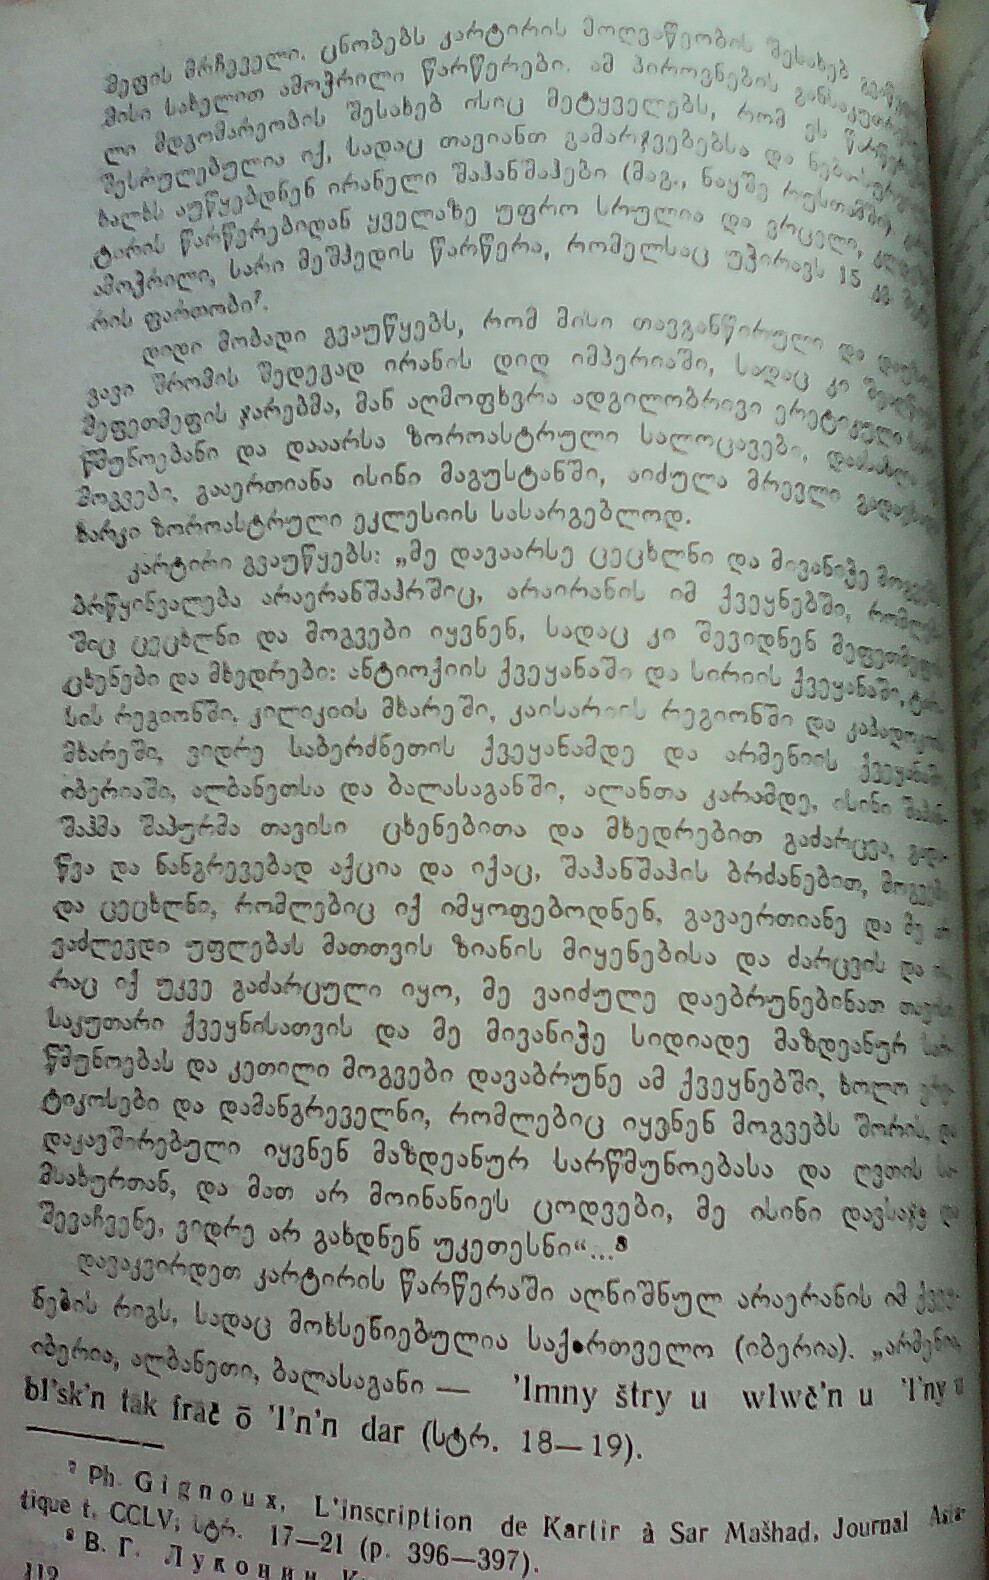 მეფის მრჩეველი. ცნობებს კარტირის მოღვაწეობის შესახებ
მისი სახელით ამოჭრილი წარწერები. ამ პიროვნების
ლი მდგომარეობის შესახებ ისიც მეტყველებს, რომ ეს
შესრულებულია იქ, სადაც თავიანთ გამარჯვებებსა და
ხალხს აუწყებდნენ ირანელი შაჰანშაჰები (მაგ., ნაყშე რუსთამში)
ტირის წარწერებიდან ყველაზე უფრო სრულია და ვრცელი,
ამოჭრილი, სარი მეშჰედის წარწერა, რომელსაც უჭირავს 15 კვ.
რის ფართობი⁷.
დიდი მობადი გვაუწყებს, რომ მისი თავგანწირული და
ვავი შრომის შედეგად ირანის დიდ იმპერიაში, სადაც კი
მეფეთმეფის ჯარებმა, მან აღმოფხვრა ადგილობრივი ერეტიკული
წმუნოებანი და დააარსა ზოროასტრული სალოცავები,
მოგვები, გააერთიანა ისინი მაგუსტანში, აიძულა მრევლი
ხარკი ზოროასტრული ეკლესიის სასარგებლოდ.
კარტირი გვაუწყებს: „მე დავაარსე ცეცხლნი და მივანიჭე
ბრწყინვალება არაერანშაჰრშიც, არაირანის იმ ქვეყნებში,
შიც ცეცხლნი და მოგვები იყვნენ, სადაც კი შევიდნენ
ცხენები და მხედრები: ანტიოქიის ქვეყანაში და სირიის ქვეყანაში,
სის რეგიონში, კილიკიის მხარეში, კაისარიის რეგიონში და
მხარეში, ვიდრე საბერძნეთის ქვეყანამდე და არმენიის
იბერიაში, ალბანეთსა და ბალასაგანში, ალანთა კარამდე, ისინი
შაჰმა შაპურმა თავისი ცხენებითა და მხედრებით გაძარცვა,
წვა და ნანგრევებად აქცია და იქაც, შაჰანშაჰის ბრძანებით,
და ცეცხლნი, რომლებიც იქ იმყოფებოდნენ, გავაერთიანე და მე
ვაძლევდი უფლებას მათთვის ზიანის მიყენებისა და ძარცვის და
რაც იქ უკვე გაძარცული იყო, მე ვაიძულე დაებრუნებინათ
საკუთარი ქვეყნისათვის და მე მივანიჭე სიდიადე მაზდეანურ
წმუნოებას და კეთილი მოგვები დავაბრუნე ამ ქვეყნებში, ხოლო
ტიკოსები და დამანგრეველნი, რომლებიც იყვნენ მოგვებს შორის,
დაკავშირებული იყვნენ მაზდეანურ სარწმუნოებასა და ღვთის
მსახურთან, და მათ არ მოინანიეს ცოდვები, მე ისინი დავსაჯე
შევაჩვენე, ვიდრე არ გახდნენ უკეთესნი“...⁸
დავაკვირდეთ კარტირის წარწერაში აღნიშნულ არაერანის იმ
ნების რიგს, სადაც მოხსენიებულია საქართველო (იბერია). „არმენია,
იბერია, ალბანეთი, ბალასაგანი — ’lmny štry u wlwč’n u ’l’ny u
bl’sk’n tāk frāč ō ’l’n’n dar (სტრ. 18—19).
⁷ Ph. Gignoux, L’inscription de Kartir à Sar Mašhad, Journal Asia-
tique t. CCLV, სტრ. 17—21 (p. 396—397).
⁸ В. Г. Луконин,
112